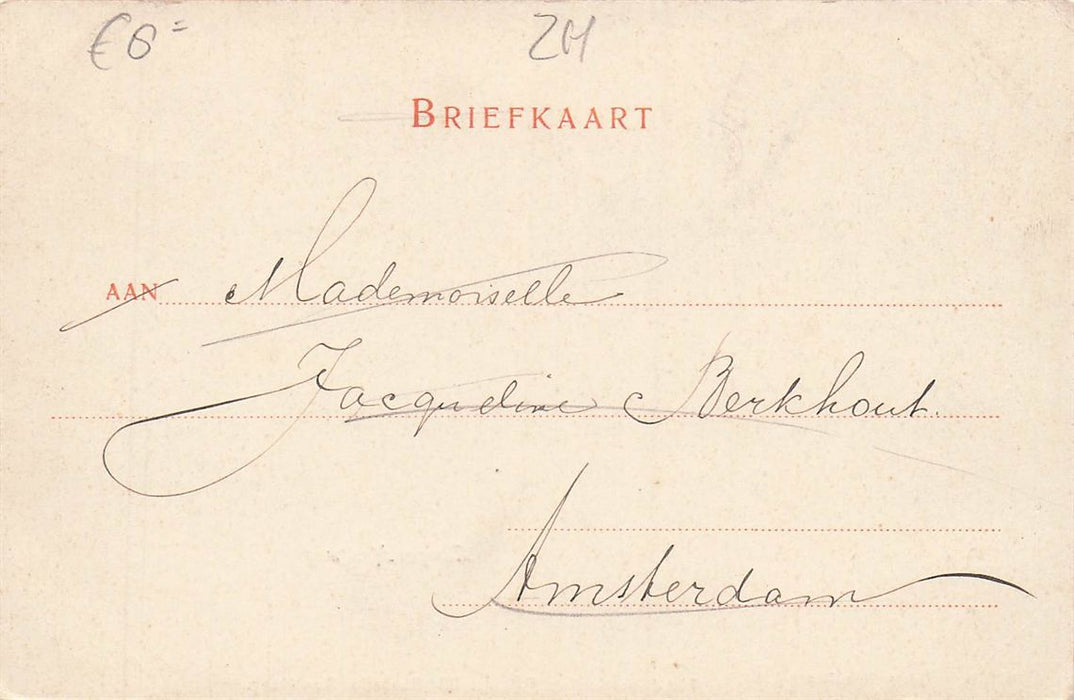 €6=
ZH
BRIEFKAART
AAN Mademoiselle
Jacqueline Berkhout.
Amsterdam